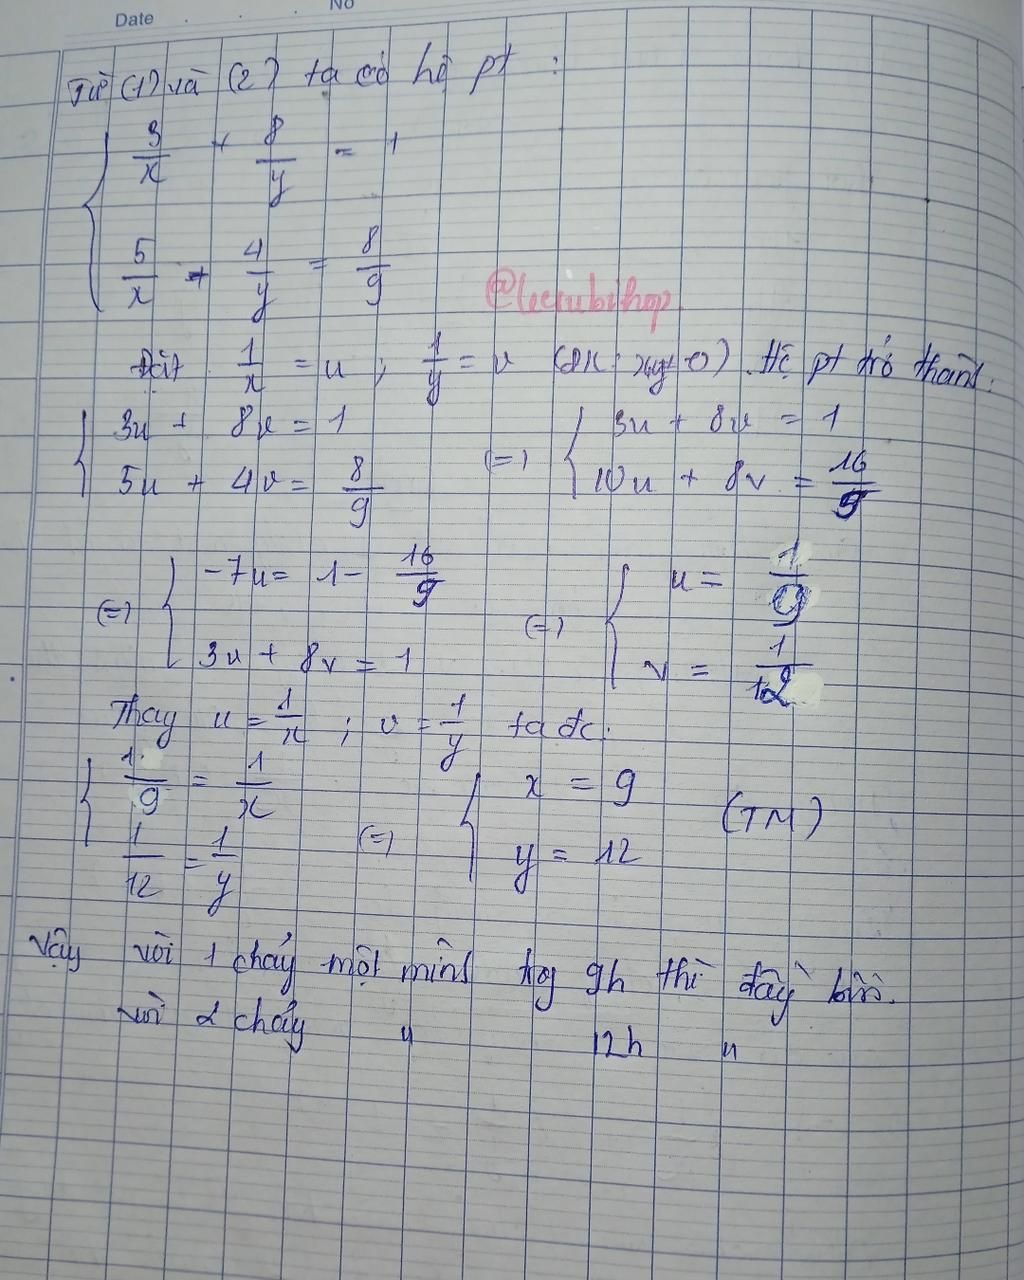 Date No
Từ (1) và (2) ta có hệ pt :
3/x + 8/y = 1
5/x + 4/y = 8/9
Đặt 1/x = u ; 1/y = v (ĐK: x,y≠0). Hệ pt trở thành:
3u + 8v = 1 (=) 3u + 8v = 1
5u + 4v = 8/9 10u + 8v = 16/9
(=) -7u = 1 - 16/9 (=) u = 1/9
3u + 8v = 1 v = 1/12
Thay u = 1/x ; v = 1/y ta đc:
1/9 = 1/x (=) x = 9 (TM)
1/12 = 1/y y = 12
Vậy vòi 1 chảy một mình trg 9h thì đầy bể.
vòi 2 chảy " 12h "